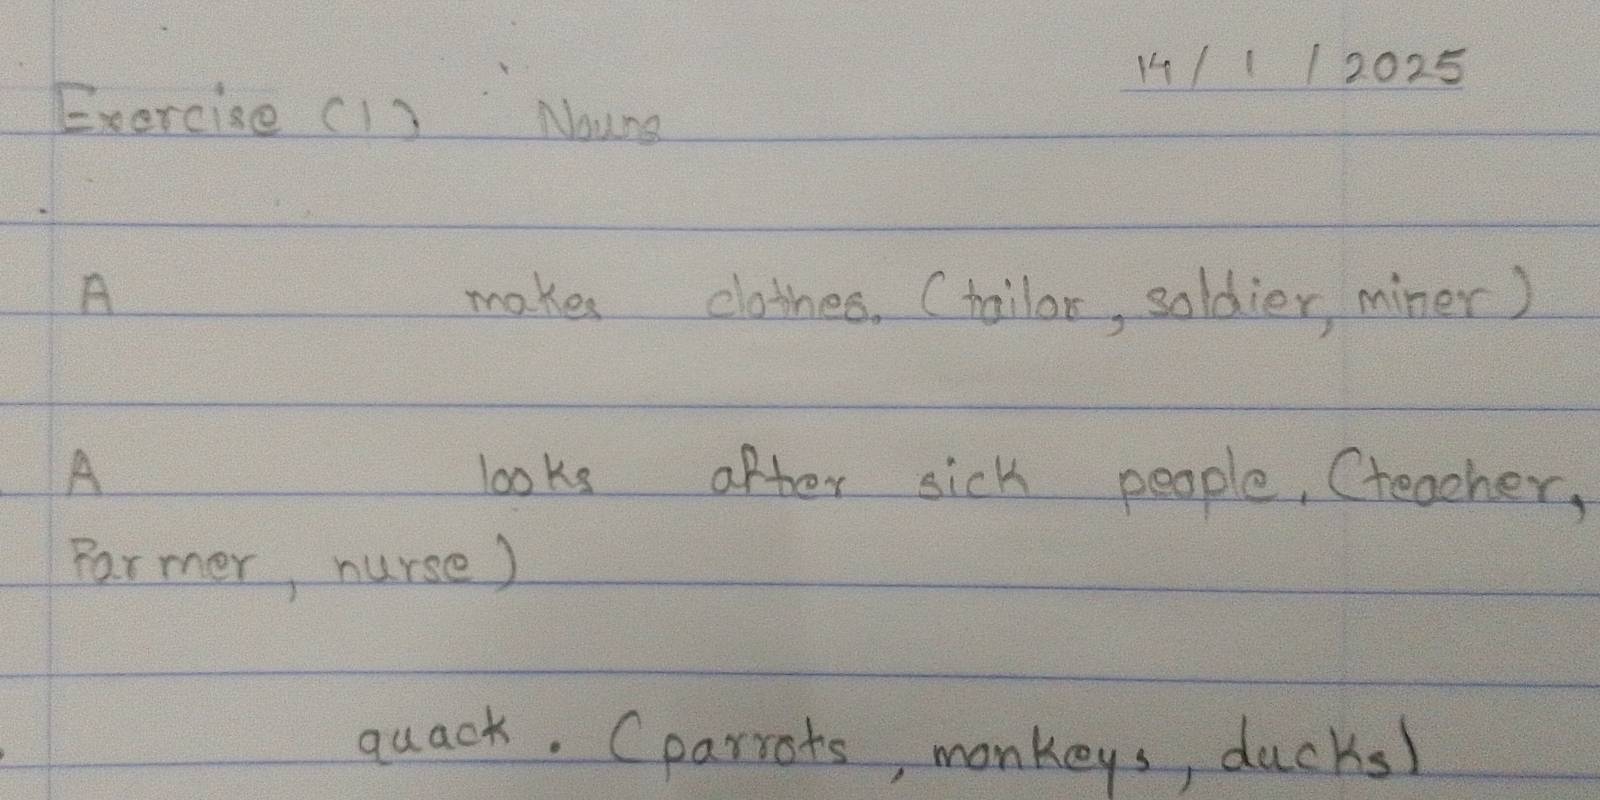 14/1/2025
Exercise (1) Nouns
A makes clothes. (tailor, soldier, miner)
A looks after sick people. (teacher,
Farmer, nurse)
quack. (parrots, monkeys, ducks)